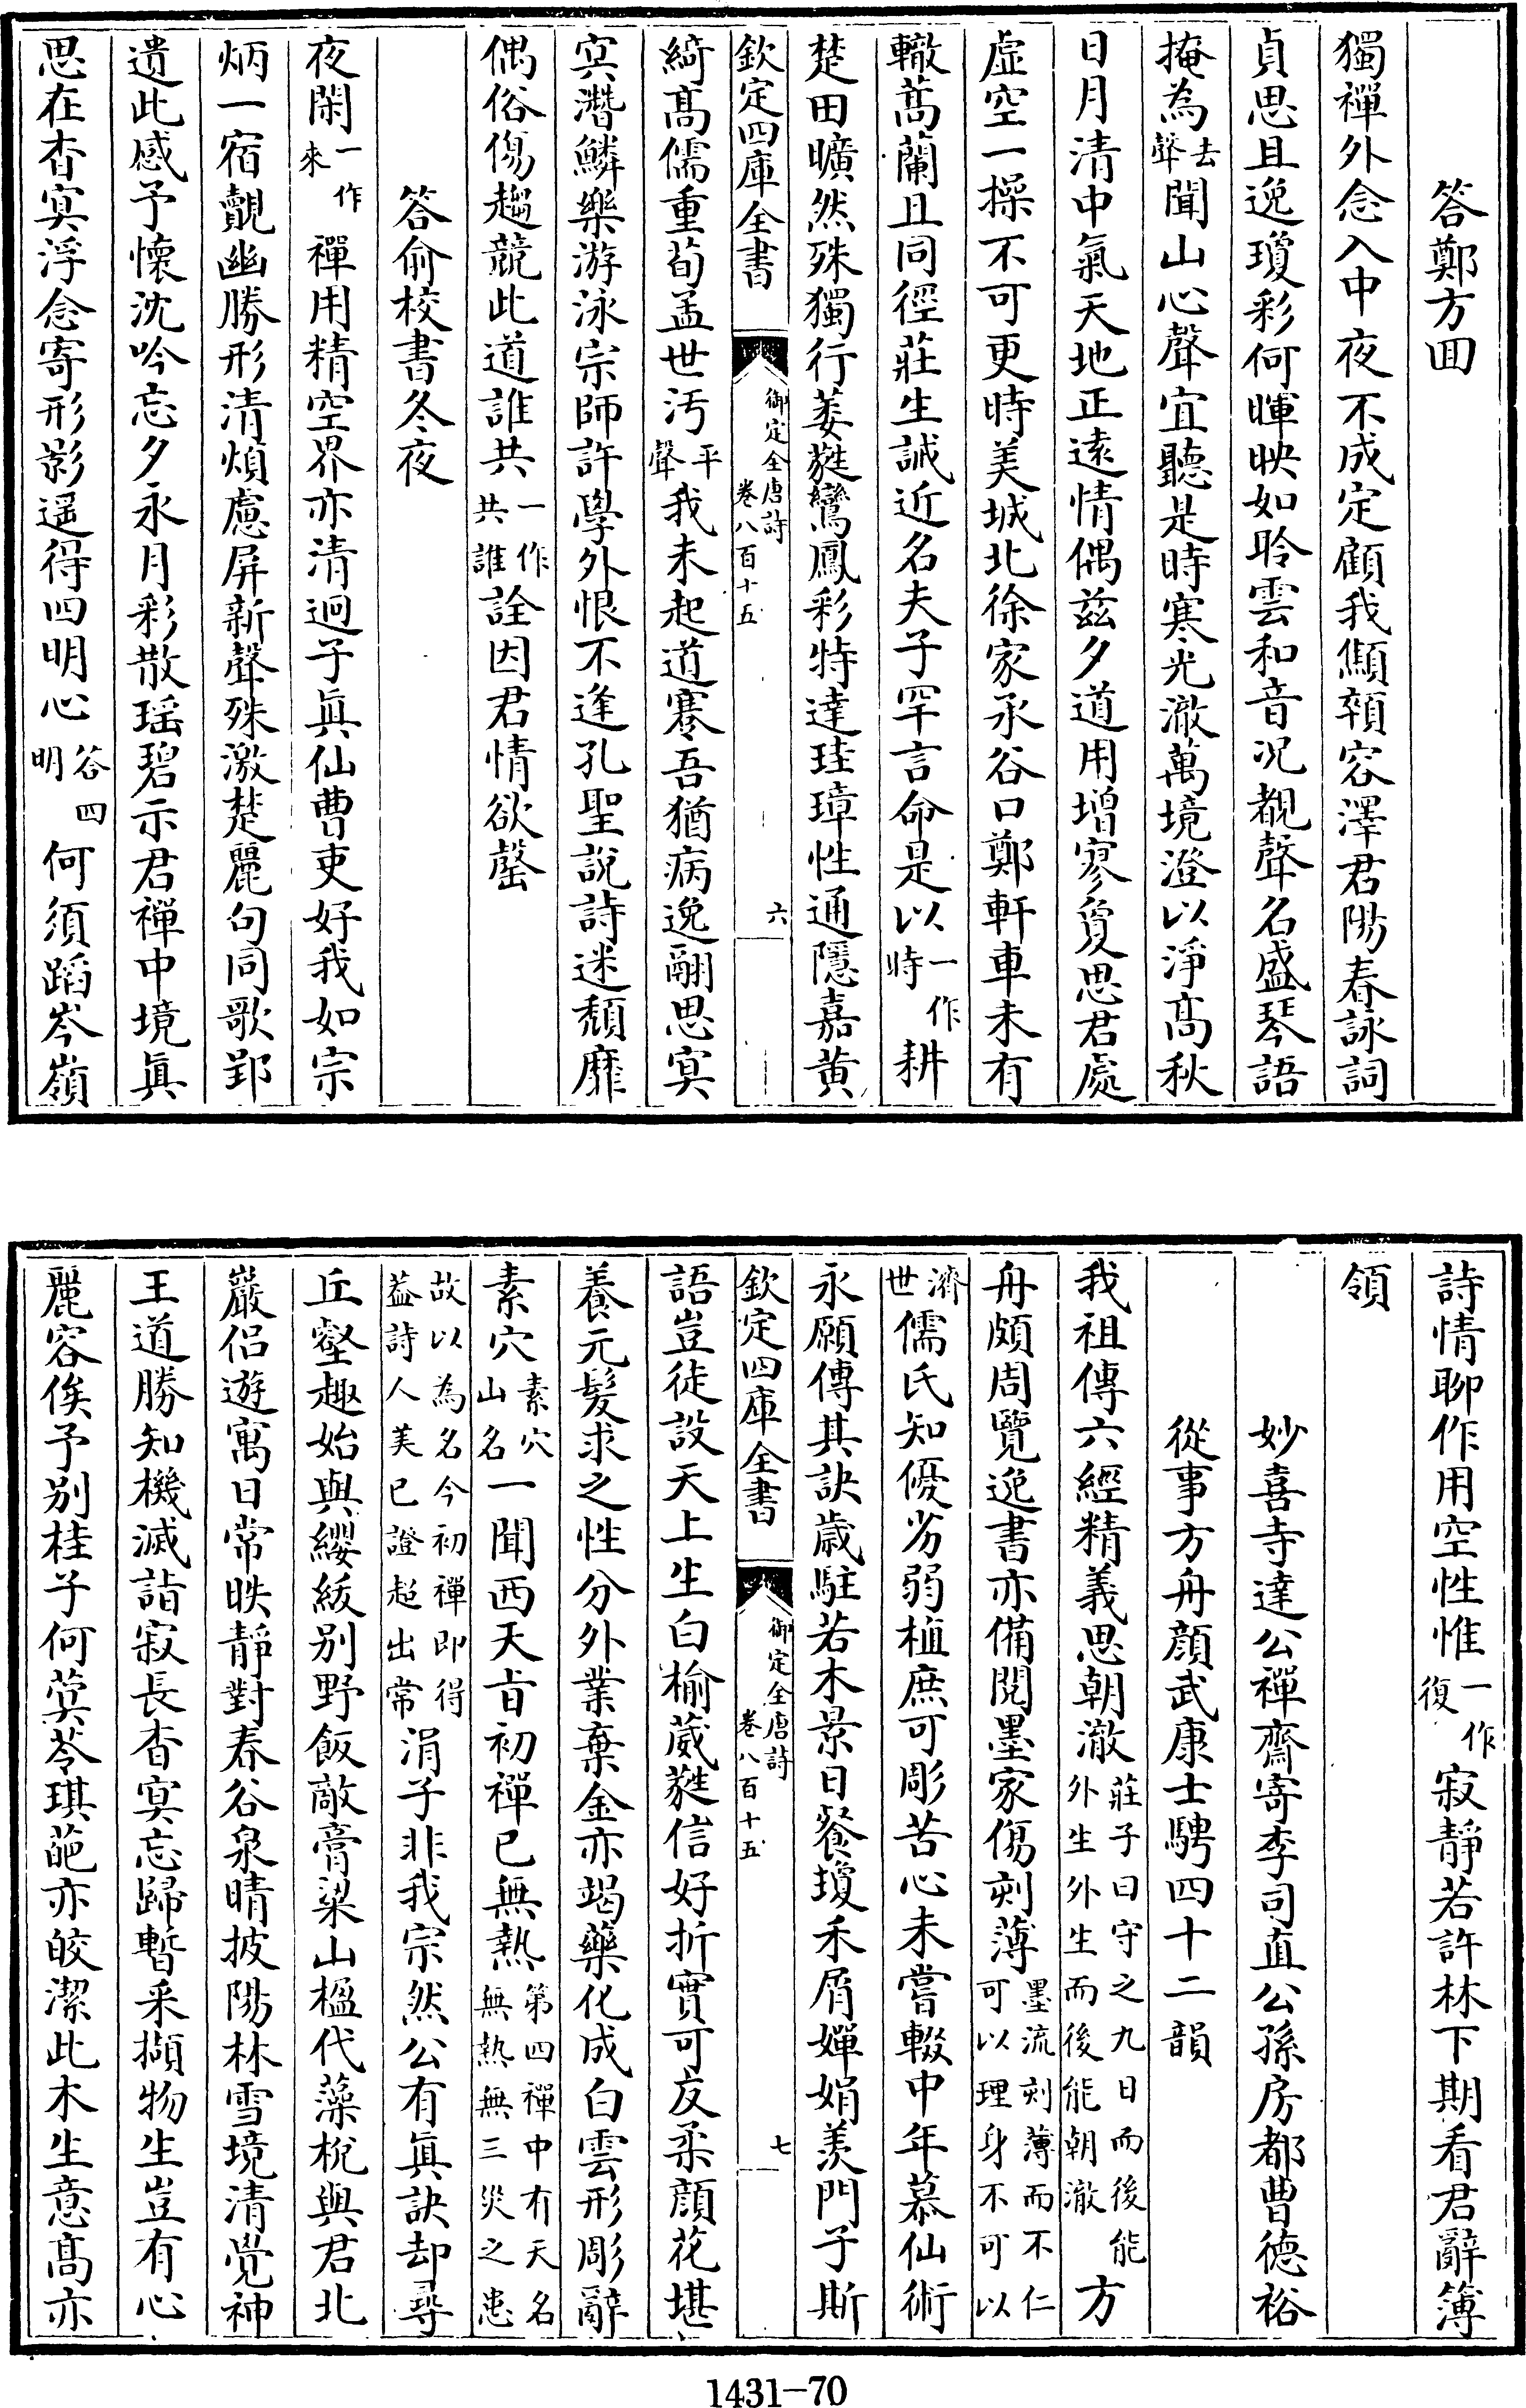 答鄭方回
獨禪外念入中夜不成定顧我顦顇容澤君陽春詠詞
貞思且逸瓊彩何暉映如聆雲和音况覩聲名盛琴語
掩為去聲聞山心聲宜聽是時寒光澈萬境澄以淨髙秋
日月清中氣天地正遠情偶兹夕道用增寥敻思君處
虛空一操不可更時美城北徐家承谷口鄭軒車未有
轍蒿蘭且同徑莊生誡近名夫子罕言命是以一作時耕
楚田曠然殊獨行萎蕤鸞鳳彩特達珪璋性通隱嘉黄
欽定四庫全書
御定全唐詩
卷八百十五
六
綺髙儒重荀孟世汚平聲我未起道蹇吾猶病逸翮思寘
寘潛鱗樂游泳宗師許學外恨不逢孔聖說詩迷頽靡
偶俗傷趨競此道誰共一作共誰詮因君情欲罄
答俞校書冬夜
夜閑一作來禪用精空界亦清迥子眞仙曹吏好我如宗
炳一宿覿幽勝形清煩慮屏新聲殊激楚麗句同歌郢
遺此感予懷沈吟忘夕永月彩散瑶碧示君禪中境眞
思在杳寘浮念寄形影遥得四明心答四明何須蹈岑嶺
詩情聊作用空性惟一作復寂靜若許林下期看君辭簿
領
妙喜寺達公禪齋寄李司直公孫房都曹德裕
從事方舟顔武康士騁四十二韻
我祖傳六經精義思朝澈莊子曰守之九日而後能外生外生而後能朝澈方
舟頗周覽逸書亦備閱墨家傷刻薄墨流刻薄而不仁可以理身不可以
濟世儒氏知優劣弱植庶可彫苦心未嘗輟中年慕仙術
永願傳其訣歲駐若木景日餐瓊禾屑嬋娟羨門子斯
欽定四庫全書
御定全唐詩
卷八百十五
七
語豈徒設天上生白榆葳蕤信好折實可反柔顔花堪
養元髮求之性分外業棄金亦竭藥化成白雲形彫辭
素穴素穴山名一聞西天旨初禪已無熱第四禪中有天名無熱無三災之患
故以為名今初禪即得葢詩人美已證超出常涓子非我宗然公有眞訣却尋
丘壑趣始與纓紱别野飯敵膏粱山楹代藻梲與君北
巖侣遊寓日常昳靜對春谷泉晴披陽林雪境清覺神
王道勝知機滅詣寂長杳寘忘歸暫采擷物生豈有心
麗容俟予别桂子何蓂苓琪葩亦皎潔此木生意髙亦
1431—70